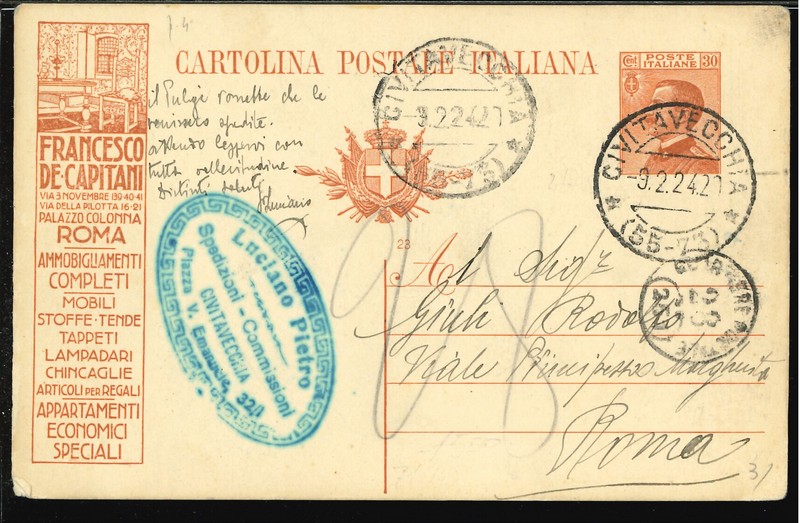 7-4
CARTOLINA POSTALE ITALIANA
Cent POSTE ITALIANE 30
FRANCESCO
DE·CAPITANI
VIA 3 NOVEMBRE 139·40·41
VIA DELLA PILOTTA 16-21
PALAZZO COLONNA
ROMA
AMMOBIGLIAMENTI
COMPLETI
MOBILI
STOFFE·TENDE
TAPPETI
LAMPADARI
CHINCAGLIE
ARTICOLI PER REGALI
APPARTAMENTI
ECONOMICI
SPECIALI
il che le
spedite.
con
tutta sollecitudine.
Distinti saluti
Luciano
CIVITAVECCHIA
-9.2.24.20
(55-73)
CIVITAVECCHIA
-9.2.24.20
(55-73)
Luciano Pietro
Spedizioni - Commissioni
CIVITAVECCHIA
Piazza V. Emanuele, 32/1
23
Al Sigr
Giuli Rodolfo
Viale Principessa Margherita
Roma
31